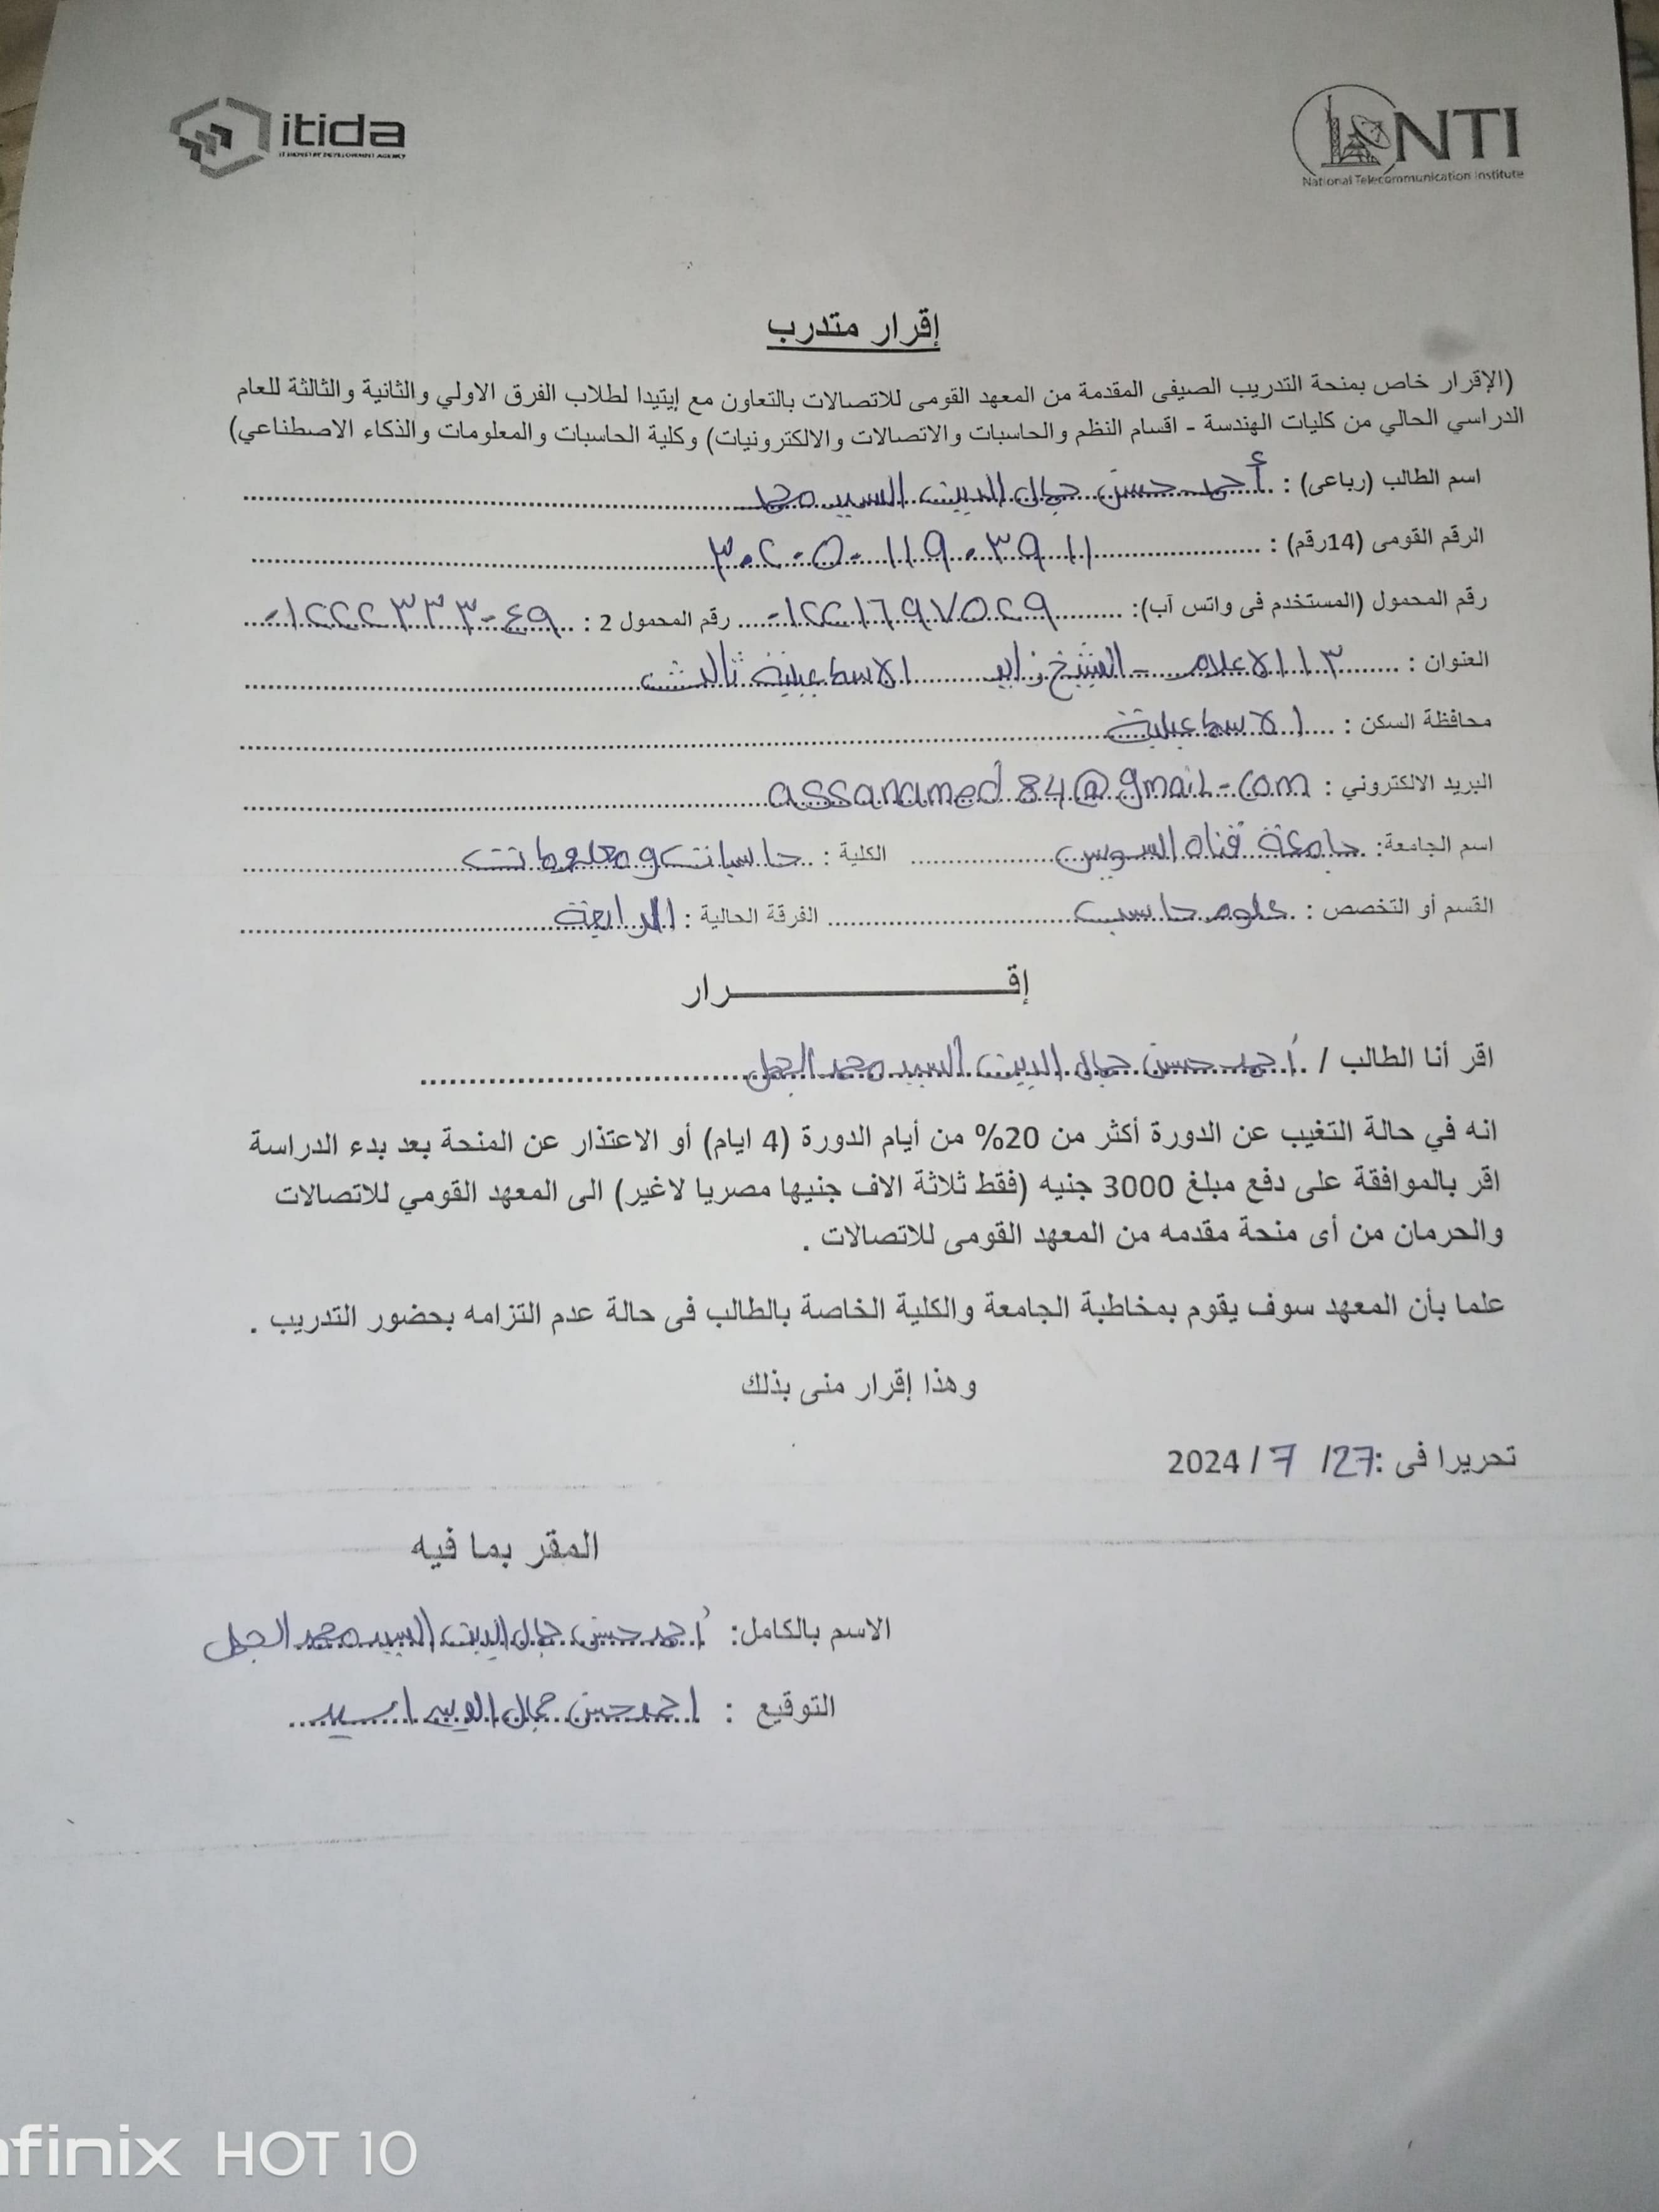 itida
IT INDUSTRY DEVELOPMENT AGENCY
NTI
National Telecommunication Institute
إقرار متدرب
(الإقرار خاص بمنحة التدريب الصيفى المقدمة من المعهد القومى للاتصالات بالتعاون مع إيتيدا لطلاب الفرق الاولي والثانية والثالثة للعام
الدراسي الحالي من كليات الهندسة - اقسام النظم والحاسبات والاتصالات والالكترونيات) وكلية الحاسبات والمعلومات والذكاء الاصطناعي)
اسم الطالب (رباعى) : أحمد حسن جمال الدين السيد محمد
الرقم القومى (14رقم) : ٣٠٢٠٥٠١١٩٠٣٩١١
رقم المحمول (المستخدم فى واتس آب): ٠١٢٢١٦٩٧٥٢٩ رقم المحمول 2 : ٠١٢٢٢٣٣٣٠٤٩
العنوان : ١٣ الاعلام - الشيخ زايد الاسماعيلية ثالث
محافظة السكن : الاسماعيلية
البريد الالكتروني : assanamed84@gmail.com
اسم الجامعة: جامعة قناه السويس الكلية : حاسبات ومعلومات
القسم أو التخصص : علوم حاسب الفرقة الحالية : الرابعة
إقــــــــــــرار
اقر أنا الطالب / أحمد حسن جمال الدين السيد محمد الجمل
انه في حالة التغيب عن الدورة أكثر من 20% من أيام الدورة (4 ايام) أو الاعتذار عن المنحة بعد بدء الدراسة
اقر بالموافقة على دفع مبلغ 3000 جنيه (فقط ثلاثة الاف جنيها مصريا لاغير) الى المعهد القومي للاتصالات
والحرمان من أى منحة مقدمه من المعهد القومى للاتصالات .
علما بأن المعهد سوف يقوم بمخاطبة الجامعة والكلية الخاصة بالطالب فى حالة عدم التزامه بحضور التدريب .
وهذا إقرار منى بذلك
تحريرا فى :27/ 7 /2024
المقر بما فيه
الاسم بالكامل: أحمد حسن جمال الدين السيد محمد الجمل
التوقيع : احمد حسن جمال الدين السيد
finix HOT 10